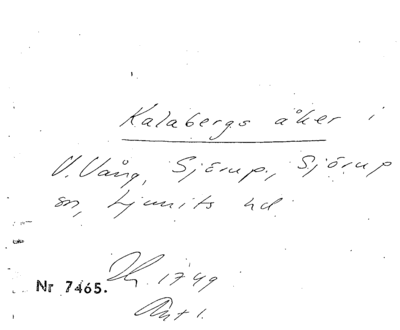 Kalabergs åker i
V. Vång, Sjörup, Sjörup
sn, Ljunits hd.
1749
Nr 7465.
Akt 1.